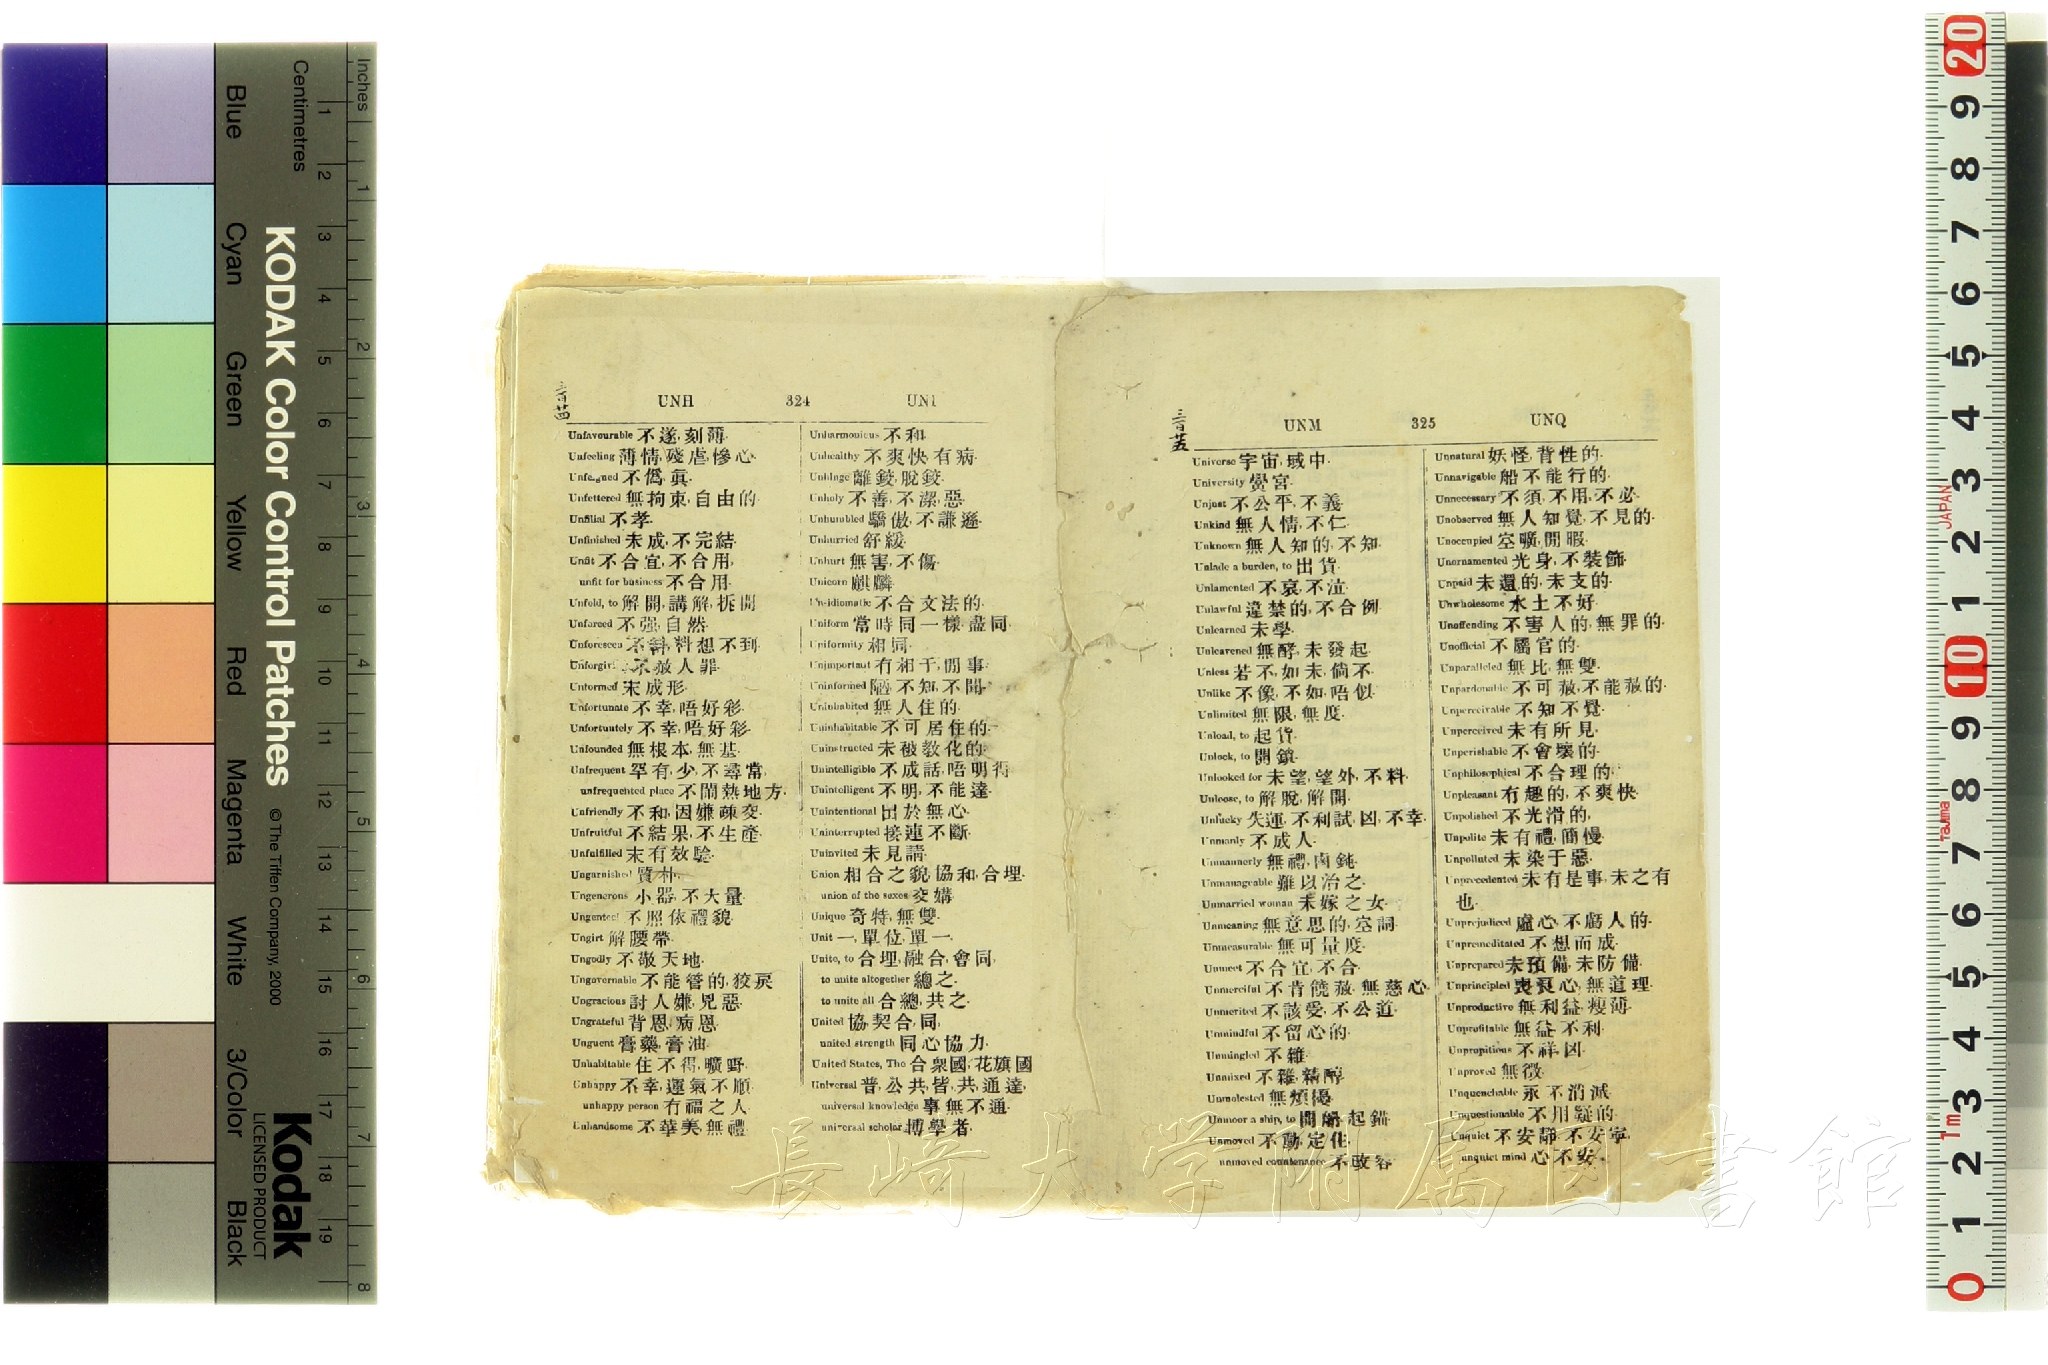 三百廿四
UNH 324 UNI
Unfavourable 不遂, 刻薄.
Unfeeling 薄情, 殘虐, 慘心.
Unfeigned 不僞, 眞.
Unfettered 無拘束, 自由的.
Unfilial 不孝.
Unfinished 未成, 不完結.
Unfit 不合宜, 不合用,
unfit for business 不合用.
Unfold, to 解開, 講解, 拆開
Unforced 不强, 自然.
Unforeseen 不料, 料想不到.
不赦人罪.
Unformed 未成形.
Unfortunate 不幸, 唔好彩.
Unfortuntely 不幸, 唔好彩.
Unfounded 無根本, 無基.
Unfrequent 罕有, 少, 不尋常.
unfrequented place 不鬧熱地方.
Unfriendly 不和, 因嫌疎交.
Unfruitful 不結果, 不生產.
Unfulfilled 未有效驗.
Ungarnished 質朴.
Ungenerous 小器, 不大量.
Ungenteel 不照依禮貌.
Ungirt 解腰帶.
Ungodly 不敬天地.
Ungovernable 不能管的, 狡戾
Ungracious 討人嫌, 兇惡.
Ungrateful 背恩, 病恩.
Unguent 膏藥, 膏油.
Unhabitable 住不得, 曠野.
Unhappy 不幸, 運氣不順.
unhappy person 冇福之人.
Unhandsome 不華美, 無禮.
Unharmonious 不和.
Unhealthy 不爽快, 有病.
Unhinge 離鉸, 脫鉸.
Unholy 不善, 不潔, 惡.
Unhumbled 驕傲, 不謙遜.
Unhurried 舒緩.
Unhurt 無害, 不傷.
Unicorn 麒麟
Un-idiomatic 不合文法的.
Uniform 當時同一樣, 盡同.
Uniformity 相同.
Unimportant 冇相干, 閒事.
Uninformed 不知, 不聞.
Uninhabited 無人住的.
Uninhabitable 不可居住的.
Uninstructed 未被敎化的.
Unintelligible 不成話, 唔明得
Unintelligent 不明, 不能達.
Unintentional 出於無心.
Uninterrupted 接連不斷.
Uninvited 未見請.
Union 相合之貌, 協和, 合埋.
union of the sexes 交媾.
Unique 奇特, 無雙.
Unit 一, 單位, 單一.
Unite, to 合埋, 融合, 會同.
to unite altogether 總之.
to unite all 合總, 共之.
United 協, 契合, 同.
united strength 同心協力.
United States, The 合衆國, 花旗國
Universal 普, 公共, 皆, 共, 通達,
universal knowledge 事無不通.
universal scholar 博學者.
三百廿五
UNM 325 UNQ
Universe 宇宙, 域中.
University 黌宮.
Unjust 不公平, 不義.
Unkind 無人情, 不仁.
Unknown 無人知的, 不知.
Unlade a burden, to 出貨.
Unlamented 不哀, 不泣.
Unlawful 違禁的, 不合例.
Unlearned 未學.
Unleavened 無酵, 未發起.
Unless 若不, 如未, 倘不.
Unlike 不像, 不如, 唔似.
Unlimited 無限, 無度.
Unload, to 起貨.
Unlock, to 開鎖.
Unlooked for 未望, 望外, 不料.
Unloose, to 解脫, 解開.
Unlucky 失運, 不利試, 凶, 不幸.
Unmanly 不成人.
Unmannerly 無禮, 鹵鈍.
Unmanageable 難以治之.
Unmarried woman 未嫁之女.
Unmeaning 無意思的, 空詞.
Unmeasurable 無可量度.
Unmeet 不合宜, 不合.
Unmerciful 不肯饒赦, 無慈心.
Unmerited 不該受, 不公道.
Unmindful 不留心的.
Unmingled 不雜.
Unmixed 不雜, 精醇.
Unmolested 無煩擾.
Unmoor a ship, to 開船, 起錨.
Unmoved 不動, 定住.
unmoved countenance 不改容.
Unnatural 妖怪, 背性的.
Unnavigable 船不能行的.
Unnecessary 不須, 不用, 不必.
Unobserved 無人知覺, 不見的.
Unoccupied 空曠, 閒暇.
Unornamented 光身, 不裝飾.
Unpaid 未還的, 未支的.
Unwholesome 水土不好.
Unoffending 不害人的, 無罪的.
Unofficial 不屬官的.
Unparalleled 無比, 無雙.
Unpardonable 不可赦, 不能赦的.
Unperceivable 不知不覺.
Unperceived 未有所見.
Unperishable 不會壞的.
Unphilosophical 不合理的.
Unpleasant 冇趣的, 不爽快.
Unpolished 不光滑的,
Unpolite 未有禮, 簡慢.
Unpolluted 未染于惡.
Unprecedented 未有是事, 未之有
也.
Unprejudiced 虛心, 不虧人的.
Unpremeditated 不想而成.
Unprepared 未預備, 未防備.
Unprincipled 喪良心, 無道理.
Unproductive 無利益, 瘦薄.
Unprofitable 無益, 不利.
Unpropitious 不祥, 凶.
Unproved 無徵.
Unquenchable 永不消滅.
Unquestionable 不用疑的.
Unquiet 不安靜, 不安寧.
unquiet mind 心不安.
長崎大学附属図書館
Inches
Centimetres
KODAK Color Control Patches
© The Tiffen Company, 2000
Kodak
LICENSED PRODUCT
Blue Cyan Green Yellow Red Magenta White 3/Color Black
1 2 3 4 5 6 7 8 9 10 11 12 13 14 15 16 17 18 19
1 2 3 4 5 6 7 8
20 9 8 7 6 5 4 3 2 1 10 9 8 7 6 5 4 3 2 1 0
JAPAN
Tajima
1m